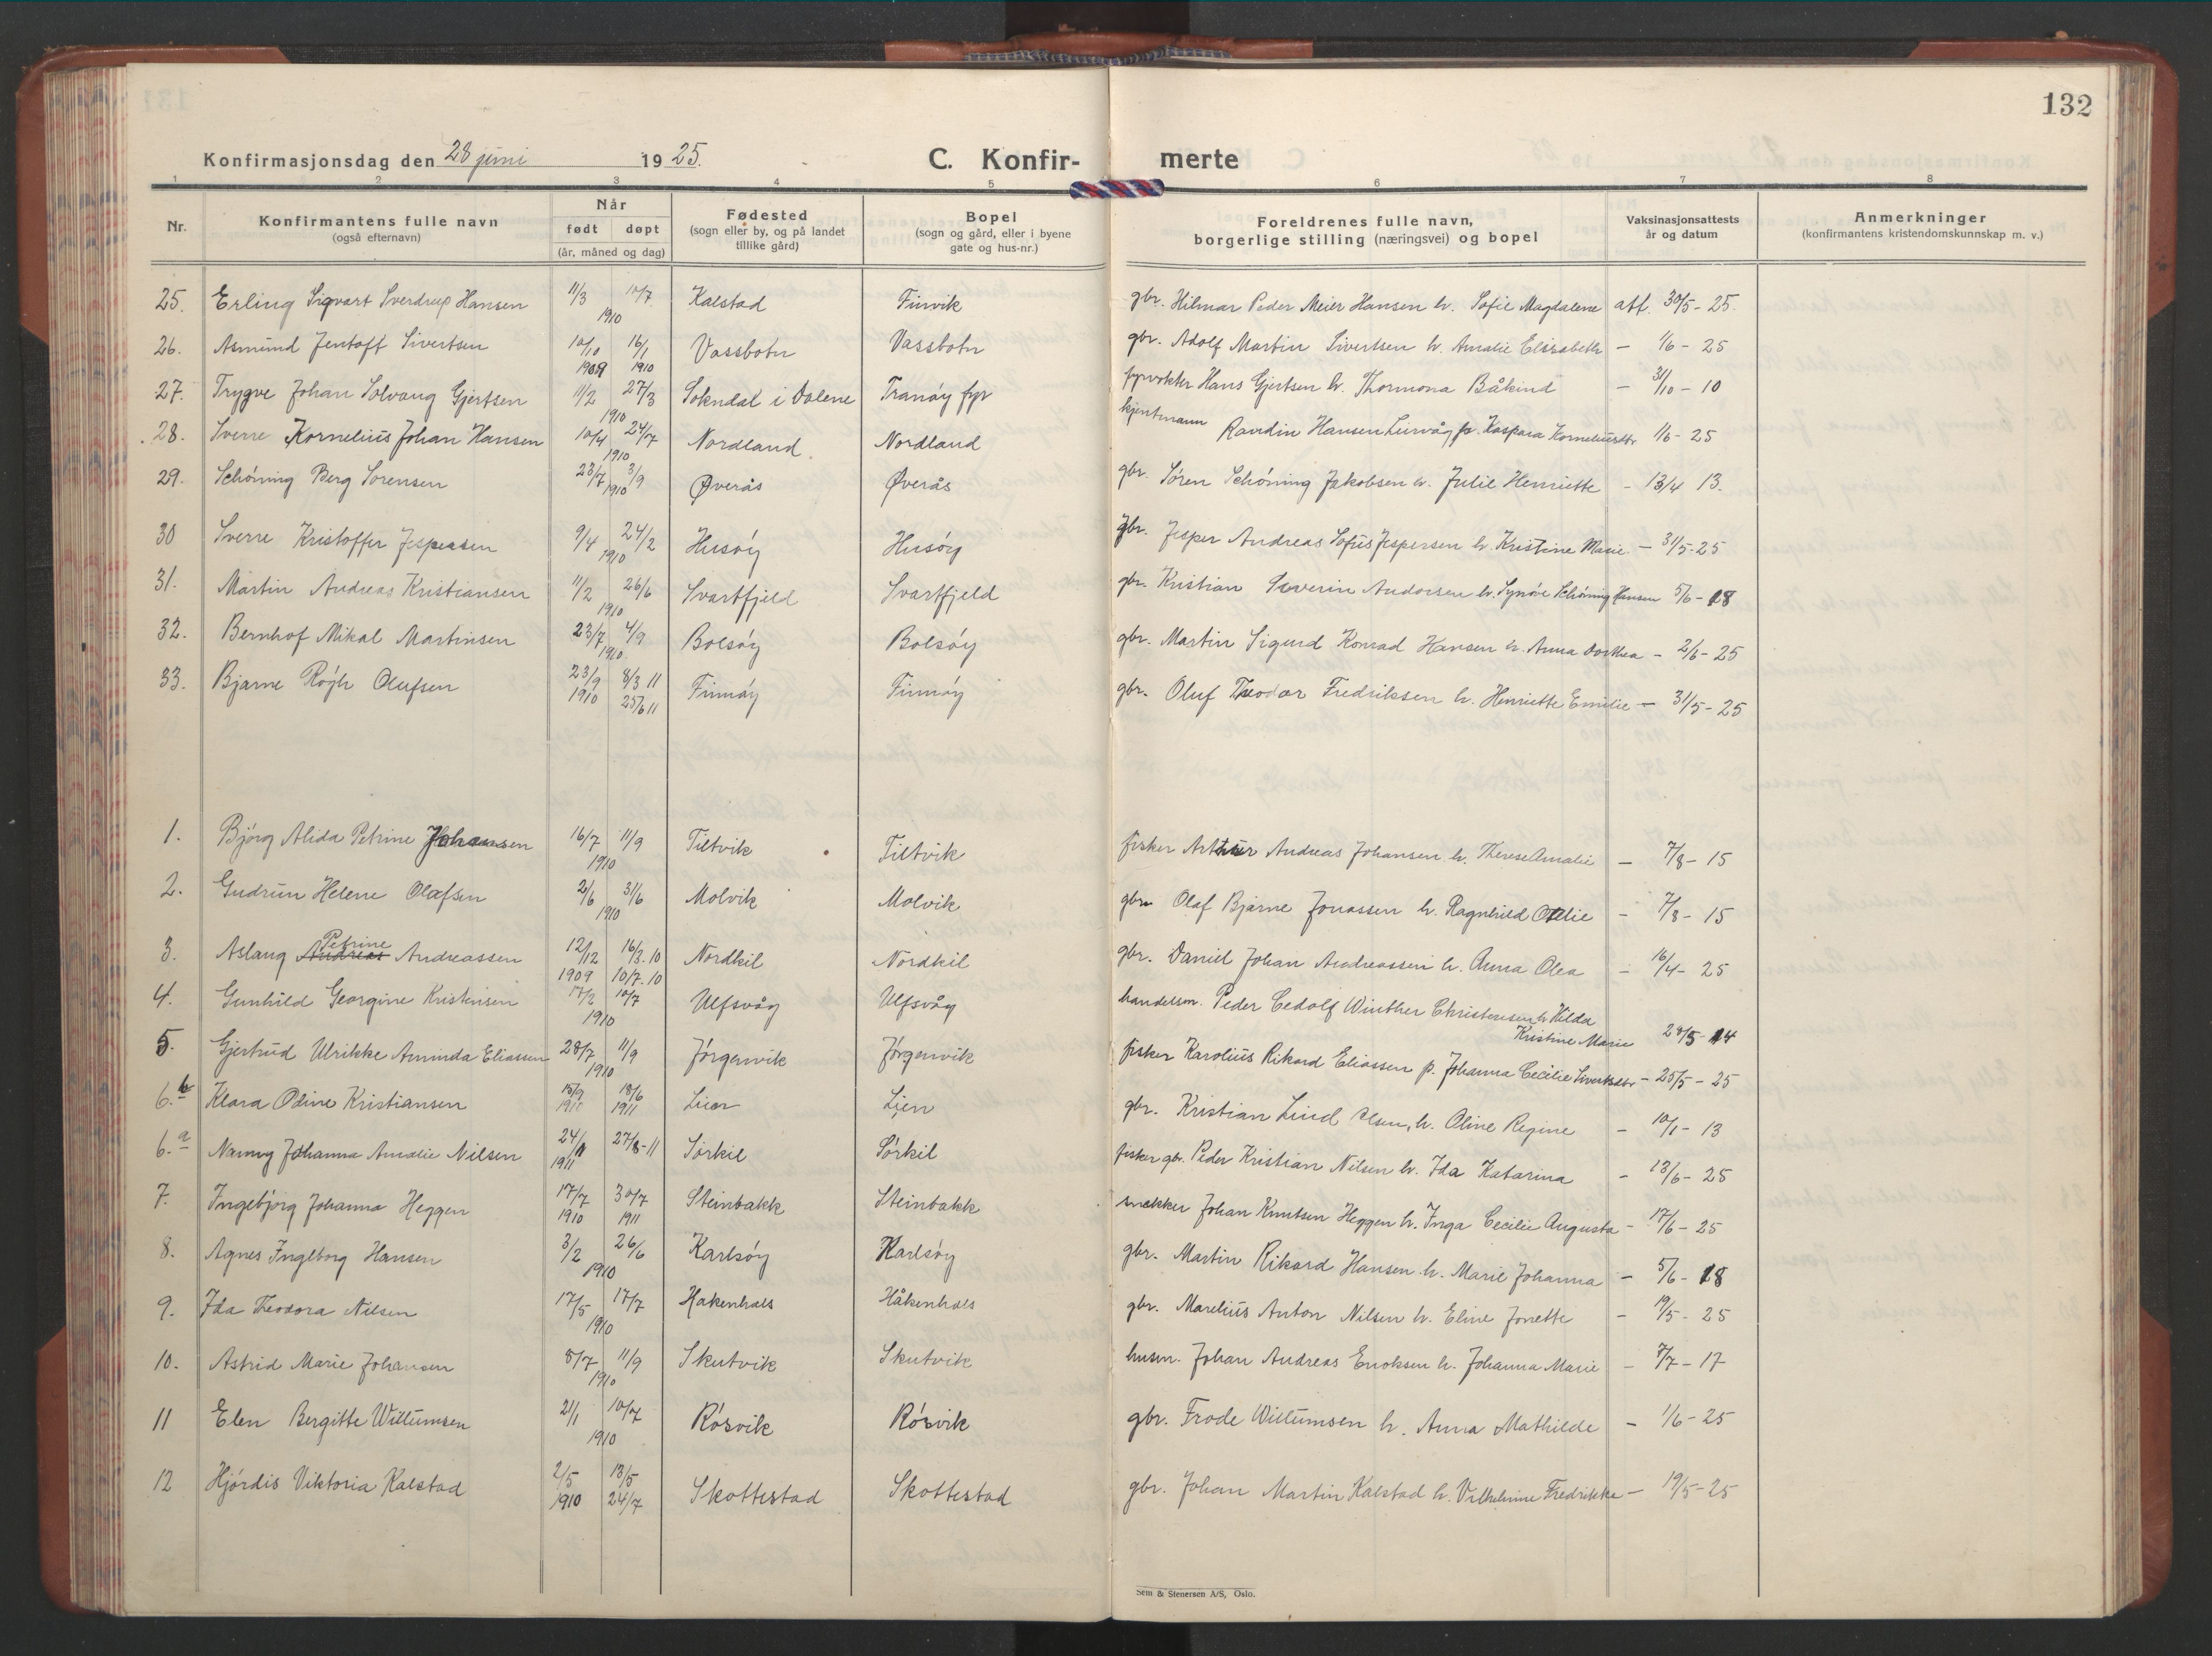 132
Konfirmasjonsdag den 28 juni 1925. C. Konfir- merte
1 2 3 4 5 6 7 8
Nr. Konfirmantens fulle navn (også efternavn) Når født døpt (år, måned og dag) Fødested (sogn eller by, og på landet tillike gård) Bopel (sogn og gård, eller i byene gate og hus-nr.) Foreldrenes fulle navn, borgerlige stilling (næringsvei) og bopel Vaksinasjonsattests år og datum Anmerkninger (konfirmantens kristendomskunnskap m. v.)
25. Erling Sigvart Sverdrup Hansen 11/3 10/7 1910 Kalstad Finvik gbr. Hilmar Peder Meier Hansen h. Sofie Magdalene att. 30/5-25.
26. Asmund Jentoft Sivertsen 10/10 1909 16/1 1910 Vassbotn Vassbotn gbr. Adolf Martin Sivertsen h. Amalie Elisabeth - 1/6-25
27. Trygve Johan Solvang Gjertsen 11/2 27/3 1910 Sokndal i Dalene Tranøy fyr fyrvokter Hans Gjertsen h. Thormona Båkind - 31/10-10
28. Sverre Kornelius Johan Hansen 10/4 24/7 1910 Nordland. Nordland kjentmann Ravdin Hansen Leirvåg p. Kaspara Korneliusdtr 1/6-25
29. Schöning Berg Sörensen 23/7 3/9 1910 Øverås Øverås gbr. Sören Schöning Jakobsen h. Julie Henriette - 13/4 13.
30 Sverre Kristoffer Jespersen 9/4 24/2 1910 Husöy Husöy gbr. Jesper Andreas Sofus Jespersen h. Kristine Marie - 31/5-25
31. Martin Andreas Kristiansen 11/2 26/6 1910 Svartfjeld Svartfjeld gbr. Kristian Severin Andorsen h. Synöve Schöning Hansen 5/6-18
32. Bernhof Mikal Martinsen 23/7 4/9 1910 Bolsöy Bolsöy gbr. Martin Sigurd Konrad Hansen h. Anna Dorthea - 2/6-25
33. Bjarne Röjh Olufsen 23/9 1910 8/3 11 25/6 11 Finnöy Finnöy gbr. Oluf Theodor Fredriksen h. Henriette Emilie - 31/5-25
1. Björg Alida Petrine Johansen 16/7 11/9 1910 Tiltvik Tiltvik fisker Arthur Andreas Johansen h. Therese Amalie - 7/8-15
2. Gudrun Helene Olafsen 2/6 31/6 1910 Molvik Molvik gbr Olaf Bjarne Jonassen h. Ragnhild Otelie - 7/8-15
3. Aslaug Andreas Petrine Andreassen 12/12 1909 16/3.10 10/7.10 Nordkil Nordkil gbr. Daniel Johan Andreassen h. Anna Olea - 16/4-25
4. Gunhild Georgine Kristensen 17/2 10/7 1910 Ulfsvåg Ulfsvåg handelsm. Peder Cedolf Winther Christensen h. Hilda Kristine Marie 28/5-14
5. Gjertrud Ulrikke Aminda Eliassen 28/7 11/9 1910 Jörgenvik Jörgenvik fisker Karolius Rikard Eliassen p. Johanna Cecilie Sivertsdtr - 25/5-25
6.b Klara Odine Kristiansen 15/9 1910 18/6 1911 Lien Lien gbr. Kristian Lind Olsen, h. Oline Regine - 10/1-13
6.a Nanny Johanna Amalie Nilsen 24/1 1911 27/8-11 Sörkil Sörkil fisker gbr. Peder Kristian Nilsen h. Ida Katarina - 13/6-25
7. Ingebjörg Johanna Heggen 17/7 1910 30/7 1911 Steinbakk Steinbakk snekker Johan Knutsen Heggen h. Inga Cecilie Augusta - 17/6-25
8. Agnes Ingeborg Hansen 3/2 26/6 1910 Karlsöy Karlsöy gbr. Martin Rikard Hansen h. Marie Johanna - 5/6-18
9. Ida Theodora Nilsen 17/5 17/7 1910 Hakenhals Håkenhals gbr. Marelius Anton Nilsen h. Eline Jonette - 19/5-25
10. Astrid Marie Johansen 5/7 11/9 1910 Skutvik Skutvik husm. Johan Andreas Enoksen h. Johanna Marie - 7/7-17
11 Elen Bergitte Willumsen 21/1 10/7 1910 Rösvik Rösvik gbr. Frode Willumsen h. Anna Mathilde - 1/6-25
12 Hjördis Viktoria Kalstad 2/5 1910 13/5 24/7 Skottestad Skottestad gbr. Johan Martin Kalstad h. Vilhelmine Fredrikke - 19/5-25
Sem & Stenersen A/S, Oslo.